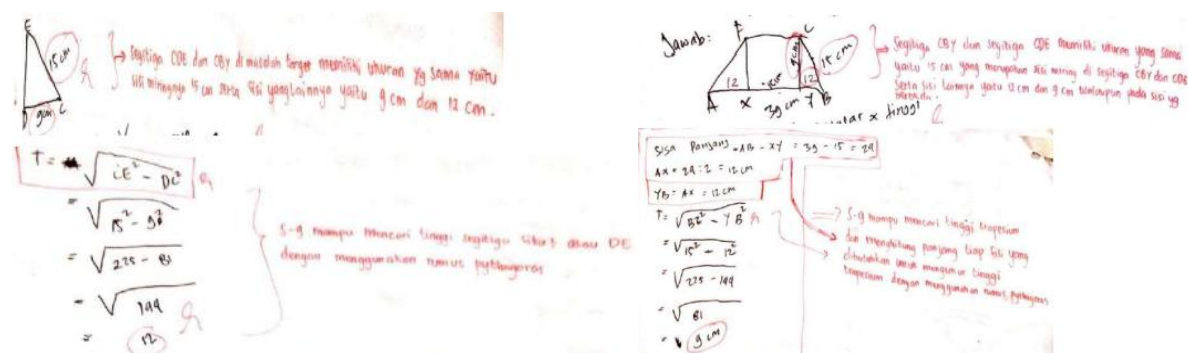 E
15 cm
9 cm
D
C
Segitiga CDE dan CBY di masalah target memiliki ukuran yg sama yaitu
sisi miringnya 15 cm serta sisi yang lainnya yaitu 9 cm dan 12 cm.
T = √CE² - DC²
= √15² - 9²
= √225 - 81
= √144
= 12
S-9 mampu mencari tinggi segitiga siku2 atau DE
dengan menggunakan rumus pythagoras
Jawab:
C
9 cm
15 cm
12
12
A
X
39 cm
Y
B
Segitiga CBY dan segitiga CDE memiliki ukuran yang sama
yaitu 15 cm yang merupakan sisi miring di segitiga CBY dan CDE
serta sisi lainnya yaitu 12 cm dan 9 cm walaupun pada sisi yg
x tinggi
Sisa Panjang = AB - XY = 39 - 15 = 24
AX = 24 : 2 = 12 cm
YB = AX = 12 cm
= √15² - 12²
= √225 - 144
= √81
= 9 cm
S-9 mampu mencari tinggi trapesium
dan menghitung panjang tiap sisi yang
dibutuhkan untuk mengukur tinggi
trapesium dengan menggunakan rumus pythagoras